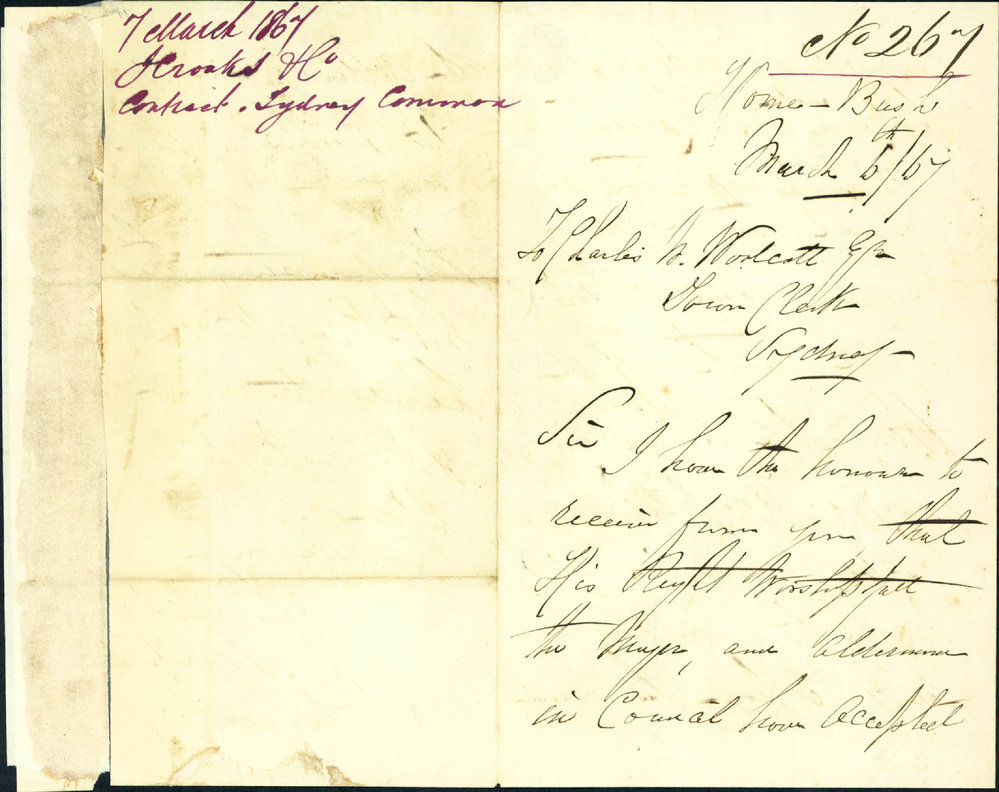 7 March 1867
J Crooks Ho
Contract. Sydney Common
No 267
Home-Bush
March 6th/67
To Charles H. Woolcott Esqr
Town Clerk
Sydney-
Sir
I have the honour to
receive from you that
His Right Worshipfull
the Mayor, and Aldermen
in Council have Accepted